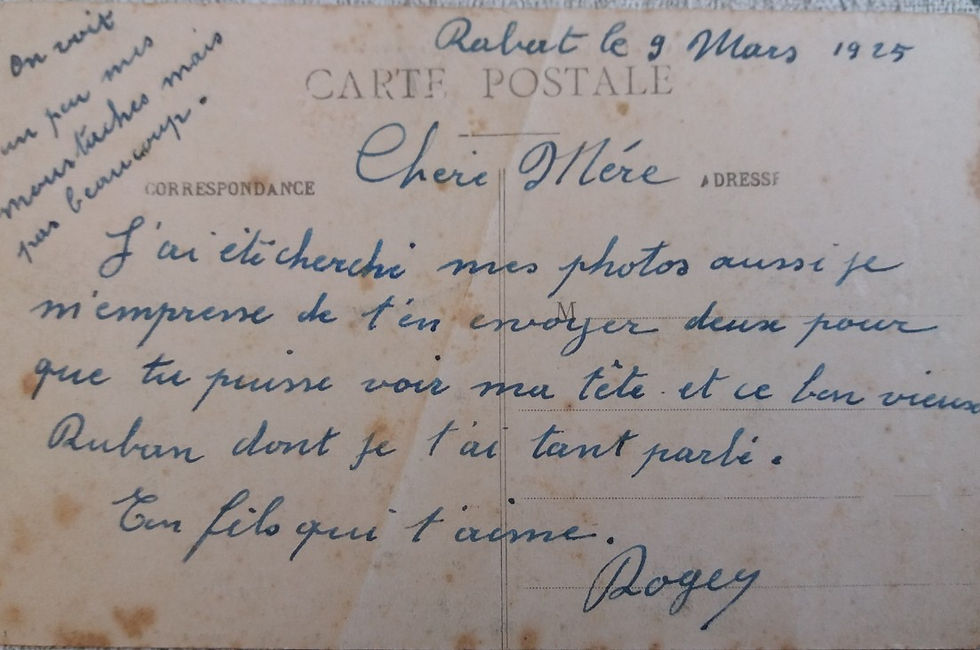 On voit
un peu mes
moustaches mais
pas beaucoup.
Rabat le 9 Mars 1925
CARTE POSTALE
Cheri Mére
CORRESPONDANCE
ADRESSE
J'ai été cherchi mes photos aussi je
m'empresse de t'en envoyer deux pour
M
que tu puisse voir ma tête et ce bon vieux
Ruban dont je t'ai tant parlé.
Ton fils qui t'aime.
Rogey